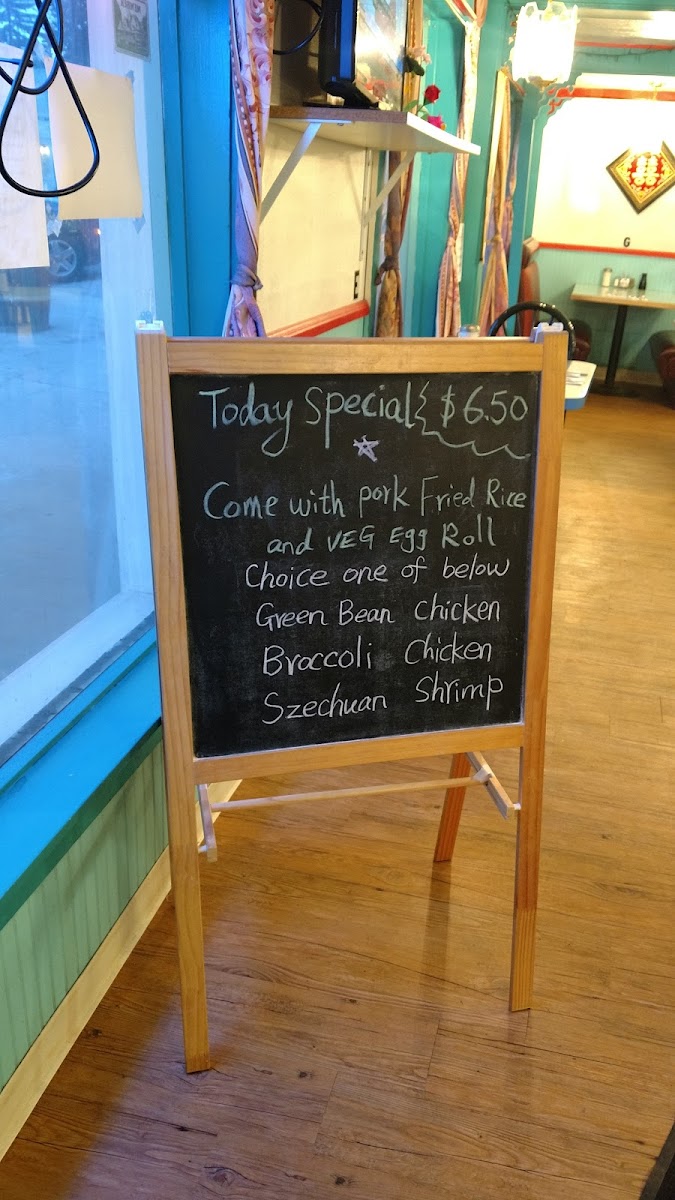 Today Special $6.50
Come with pork Fried Rice
and VEG Egg Roll
Choice one of below
Green Bean Chicken
Broccoli Chicken
Szechuan Shrimp
G